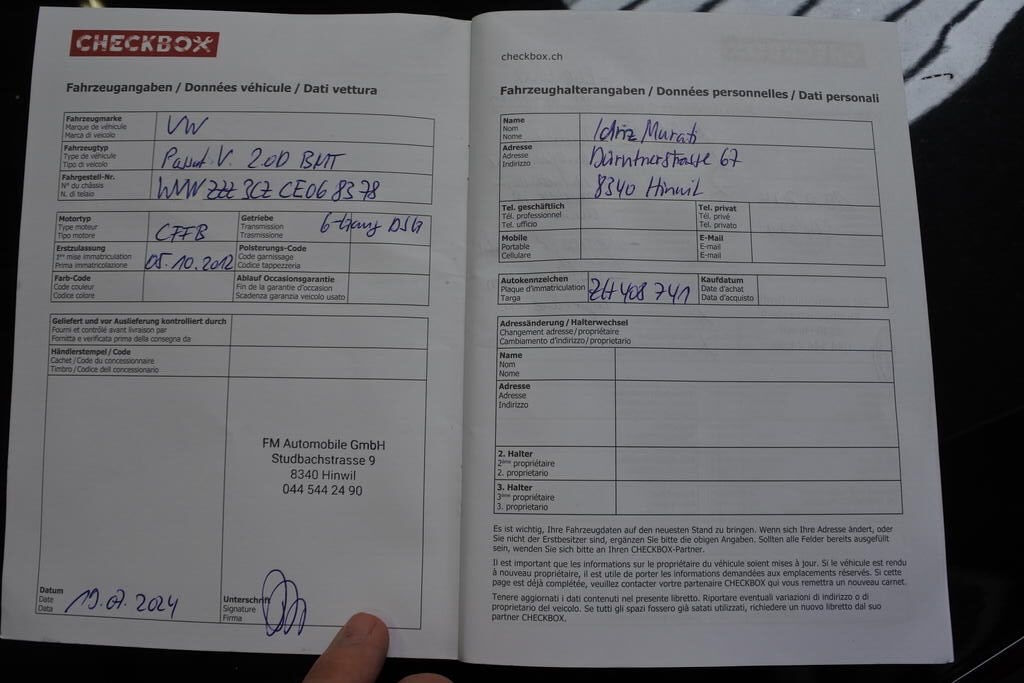 CHECKBOX
Fahrzeugangaben / Données véhicule / Dati vettura
Fahrzeugmarke
Marque de véhicule
Marca di veicolo
VW
Fahrzeugtyp
Type de véhicule
Tipo di veicolo
Passat V. 2.0D BMT
Fahrgestell-Nr.
N° du châssis
N. di telaio
WVW ZZZ 3CZ CE068378
Motortyp
Type moteur
Tipo motore
CFFB
Getriebe
Transmission
Trasmissione
6-Gang DSG
Erstzulassung
1ère mise immatriculation
Prima immatricolazione
05.10.2012
Polsterungs-Code
Code garnissage
Codice tappezzeria
Farb-Code
Code couleur
Codice colore
Ablauf Occasionsgarantie
Fin de la garantie d'occasion
Scadenza garanzia veicolo usato
Geliefert und vor Auslieferung kontrolliert durch
Fourni et contrôlé avant livraison par
Fornitta e verificata prima della consegna da
Händlerstempel / Code
Cachet / Code du concessionnaire
Timbro / Codice dell concessionario
FM Automobile GmbH
Studbachstrasse 9
8340 Hinwil
044 544 24 90
Datum
Date
Data
19.07.2024
Unterschrift
Signature
Firma
checkbox.ch
Fahrzeughalterangaben / Données personnelles / Dati personali
Name
Nom
Nome
Idriz Murati
Adresse
Adresse
Indirizzo
Dürntnerstrasse 67
8340 Hinwil
Tel. geschäftlich
Tél. professionnel
Tel. ufficio
Tel. privat
Tél. privé
Tel. privato
Mobile
Portable
Cellulare
E-Mail
E-mail
E-mail
Autokennzeichen
Plaque d'immatriculation
Targa
ZH 408 741
Kaufdatum
Date d'achat
Data d'acquisto
Adressänderung / Halterwechsel
Changement adresse / propriétaire
Cambiamento d'indirizzo / proprietario
Name
Nom
Nome
Adresse
Adresse
Indirizzo
2. Halter
2ème propriétaire
2. proprietario
3. Halter
3ème propriétaire
3. proprietario
Es ist wichtig, Ihre Fahrzeugdaten auf den neuesten Stand zu bringen. Wenn sich Ihre Adresse ändert, oder
Sie nicht der Erstbesitzer sind, ergänzen Sie bitte die obigen Angaben. Sollten alle Felder bereits ausgefüllt
sein, wenden Sie sich bitte an Ihren CHECKBOX-Partner.
Il est important que les informations sur le propriétaire du véhicule soient mises à jour. Si le véhicule est rendu
à nouveau propriétaire, il est utile de porter les informations demandées aux emplacements réservés. Si cette
page est déjà complétée, veuillez contacter vortre partenaire CHECKBOX qui vous remettra un nouveau carnet.
Tenere aggiornati i dati contenuti nel presente libretto. Riportare eventuali variazioni di indirizzo o di
proprietario del veicolo. Se tutti gli spazi fossero già satati utilizzati, richiedere un nuovo libretto dal suo
partner CHECKBOX.